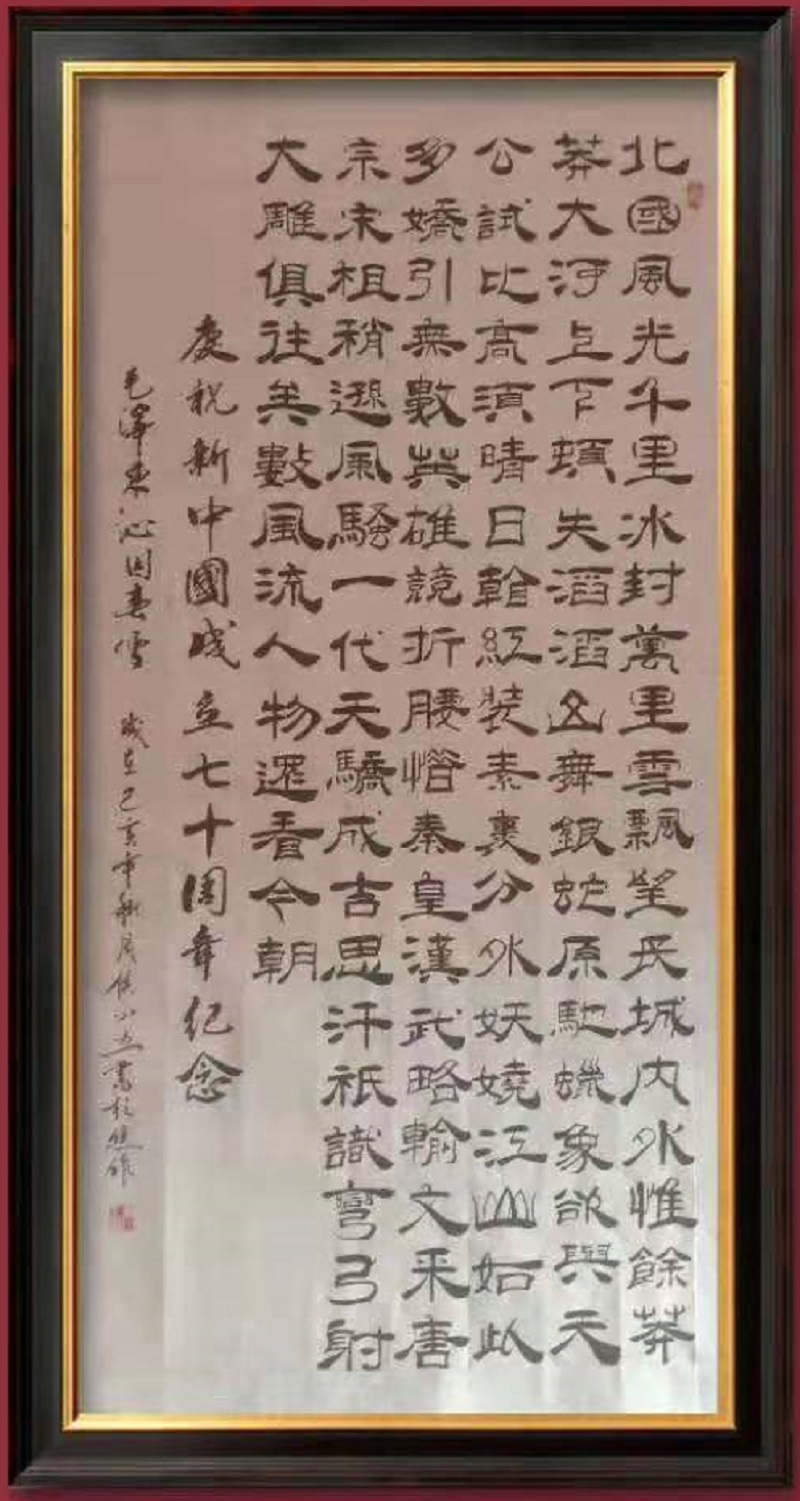 北國風光千里冰封萬里雪飄望長城内外惟餘莽
莽大河上下頓失滔滔山舞銀蛇原馳蠟象欲與天
公試比高須晴日看紅裝素裹分外妖嬈江山如此
多嬌引無數英雄競折腰惜秦皇漢武略輸文采唐
宗宋祖稍遜風騷一代天驕成吉思汗祇識彎弓射
大雕俱往矣數風流人物還看今朝
慶祝新中國成立七十周年紀念
毛澤東沁园春雪 歲在己亥年月侯小書於焦作